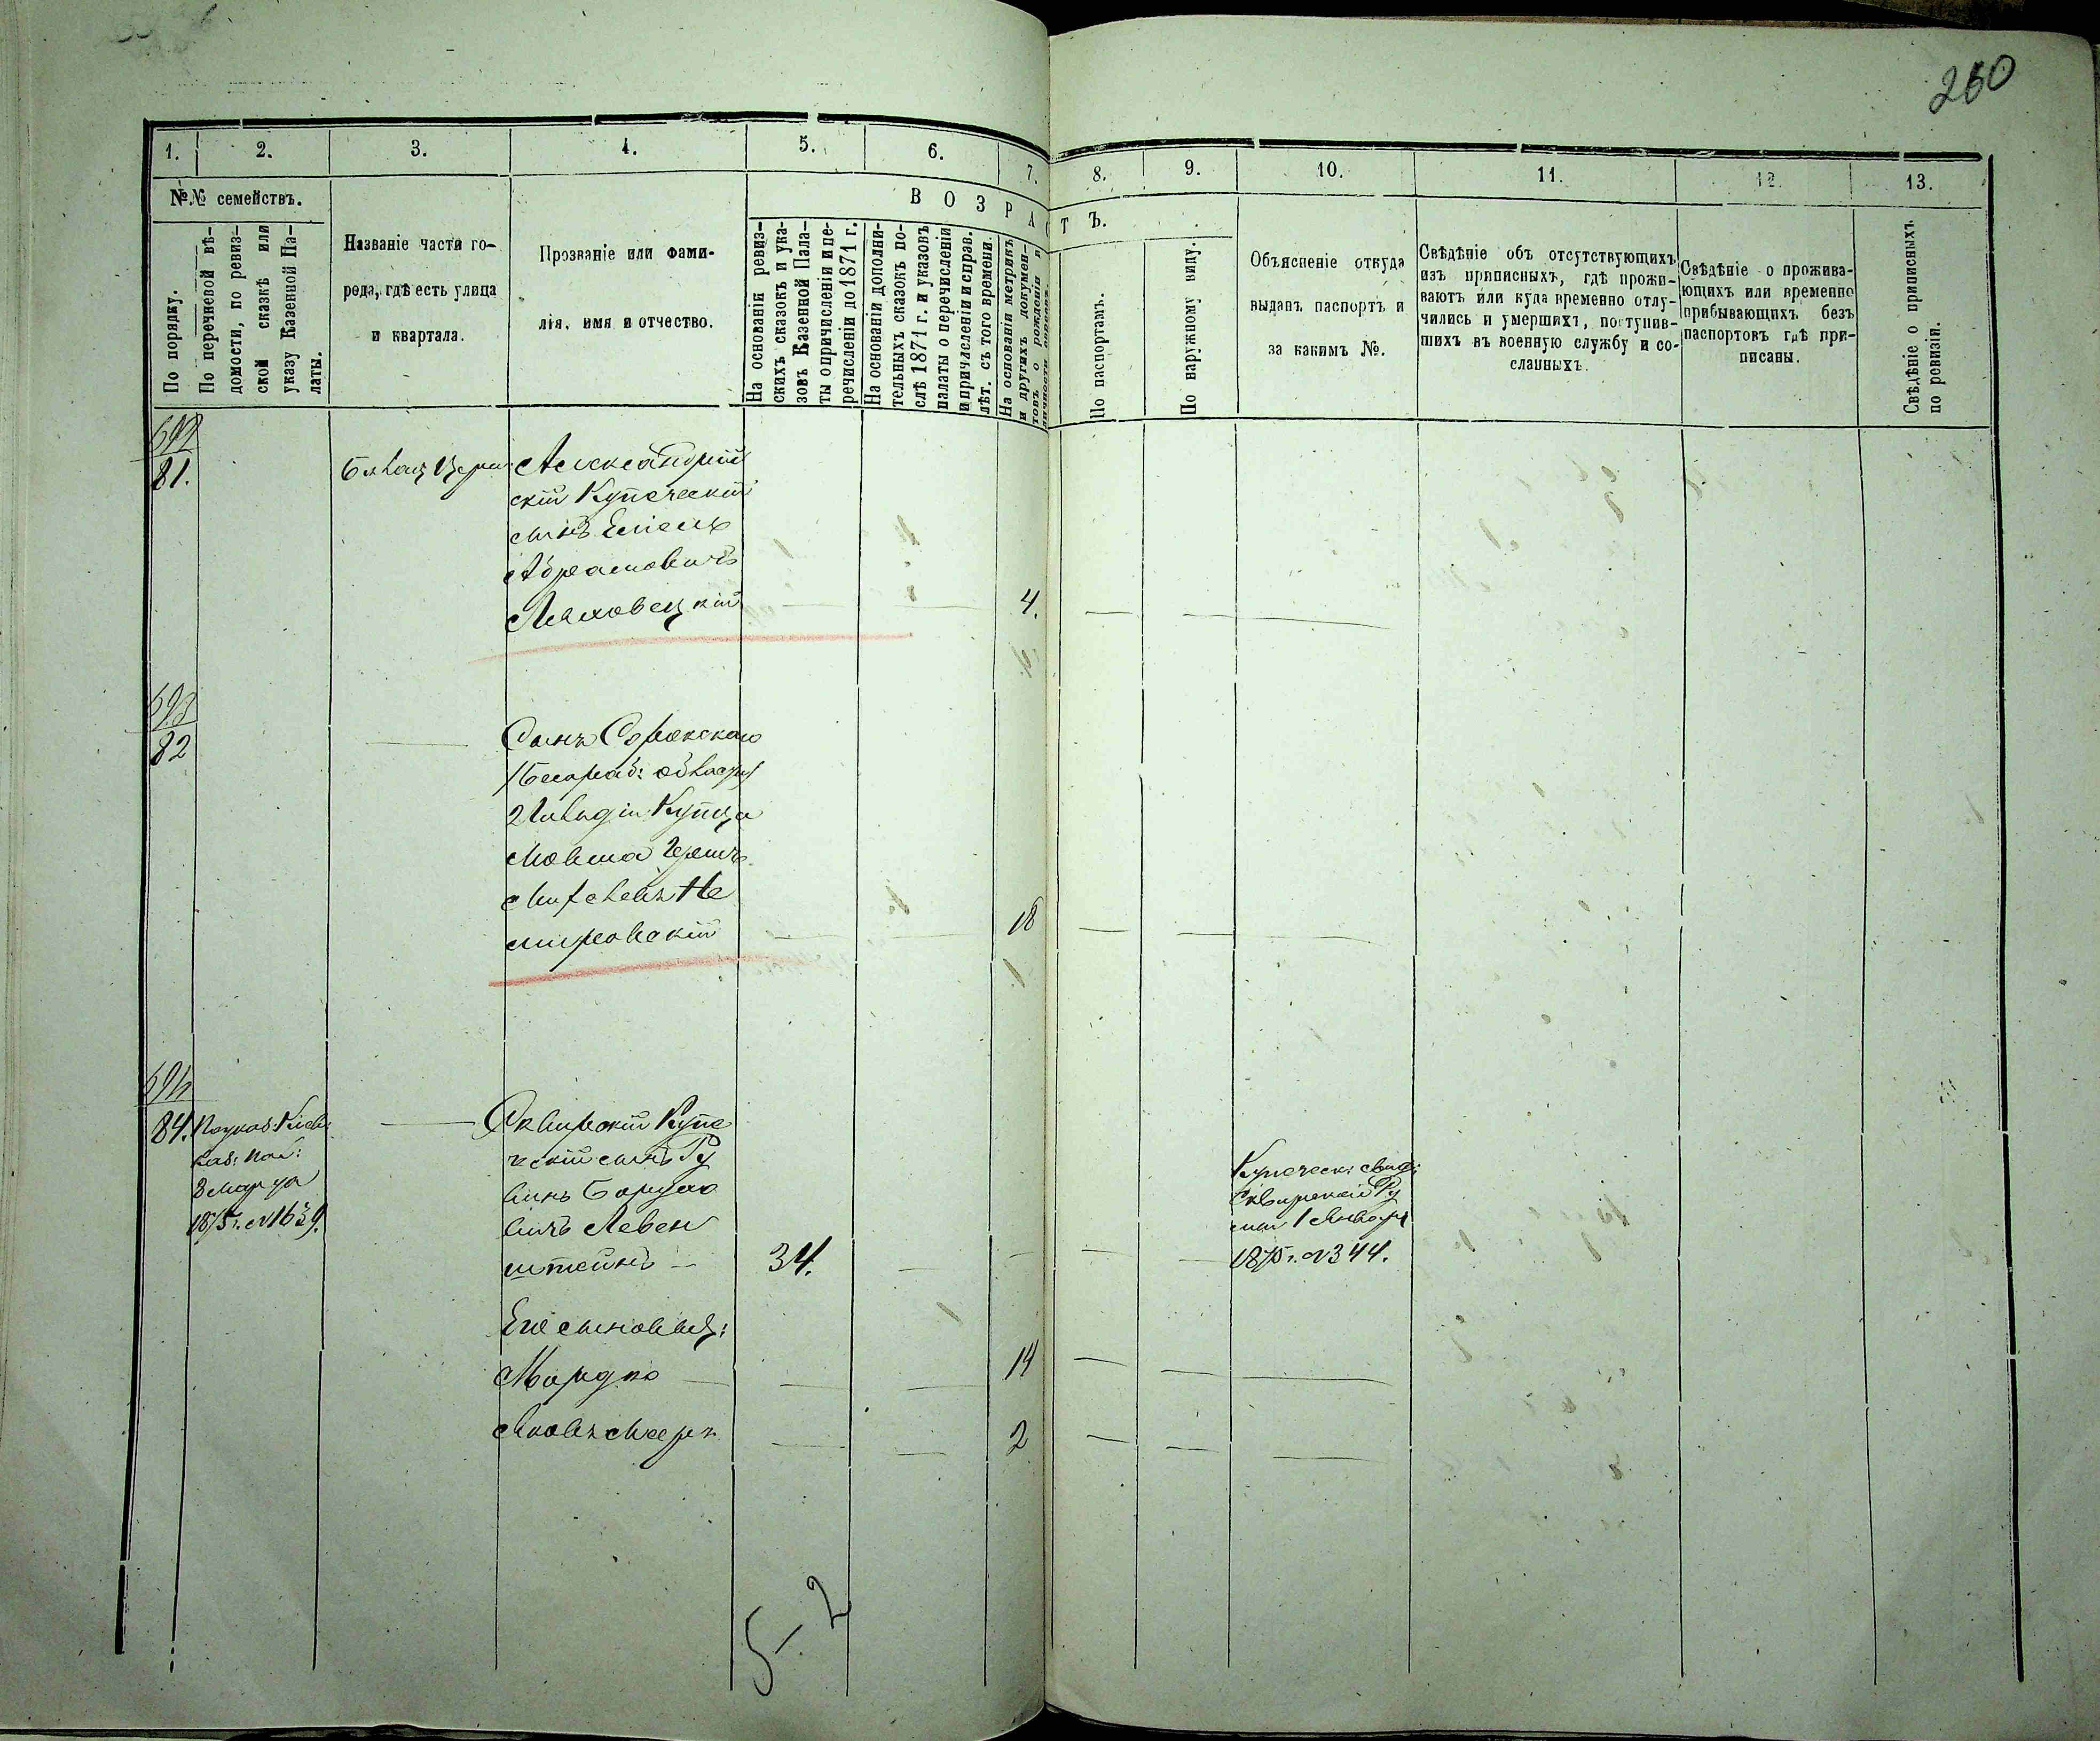 260
1. 2. 3. 4. 5. 6. 7. 8. 9. 10. 11. 12. 13.
№№ семействъ.
По порядку.
По перечневой вѣ-
домости, по ревиз-
ской сказкѣ или
указу Казенной Па-
латы.
Названіе части го-
рода, гдѣ есть улица
и квартала.
Прозваніе или фами-
лія, имя и отчество.
ВОЗРАСТЪ.
На основаніи ревиз-
скихъ сказокъ и ука-
зовъ Казенной Пала-
ты о причисленіи и пе-
речисленіи до 1871 г.
На основаніи дополни-
тельныхъ сказокъ по-
слѣ 1871 г. и указовъ
палаты о перечисленіи
и причисленіи и справ.
лѣт. съ того времени.
На основаніи метрикъ
и другихъ докумен-
товъ о рожденіи и
По паспортамъ.
По наружному виду.
Объясненіе откуда
выданъ паспортъ и
за какимъ №.
Свѣдѣніе объ отсутствующихъ
изъ приписныхъ, гдѣ прожи-
ваютъ или куда временно отлу-
чились и умершихъ, поступив-
шихъ въ военную службу и со-
сланныхъ.
Свѣдѣніе о прожива-
ющихъ или временно
прибывающихъ безъ
паспортовъ гдѣ при-
писаны.
Свѣдѣніе о приписныхъ
по ревизіи.
692
81.
Александрій
скій Купеческій
сынъ
Абрамовичъ
Ляховецкій 4.
693
82
Сынъ Сорокскаго
/Бесараб: области/
2 гильдіи Купца
Мовша Гершъ
Не
мировскій 18
694
84. По указ: Кіев:
Каз: Пал:
8 Марта
1875 г. №1639.
Сквирскій Купе
ческій сынъ Ру
винъ Борухо
вичъ Левен
штейнъ 34.
Купеческ: свид:
Сквирской Ду
мы 1 Января
1875 г. №344.
Его сыновья:
Мордко 14
Яковъ Мееръ 2
5-2